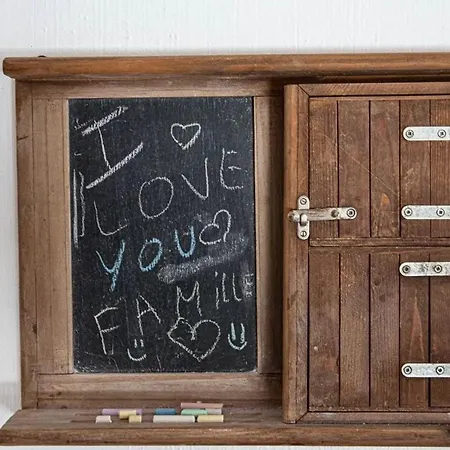 I
LOVE
YOU
FAMille